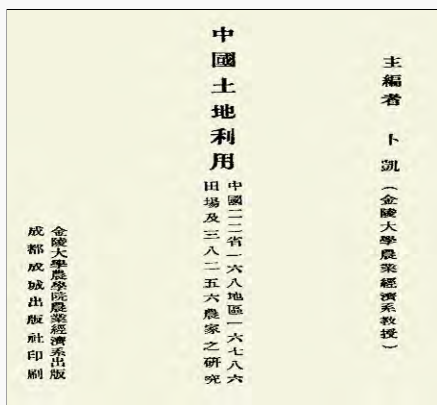 主編者 卜凱（金陵大學農業經濟系教授）
中國土地利用
中國二二省一六八地區一六七八六
田場及三八二五六農家之研究
金陵大學農學院農業經濟系出版
成都成城出版社印刷